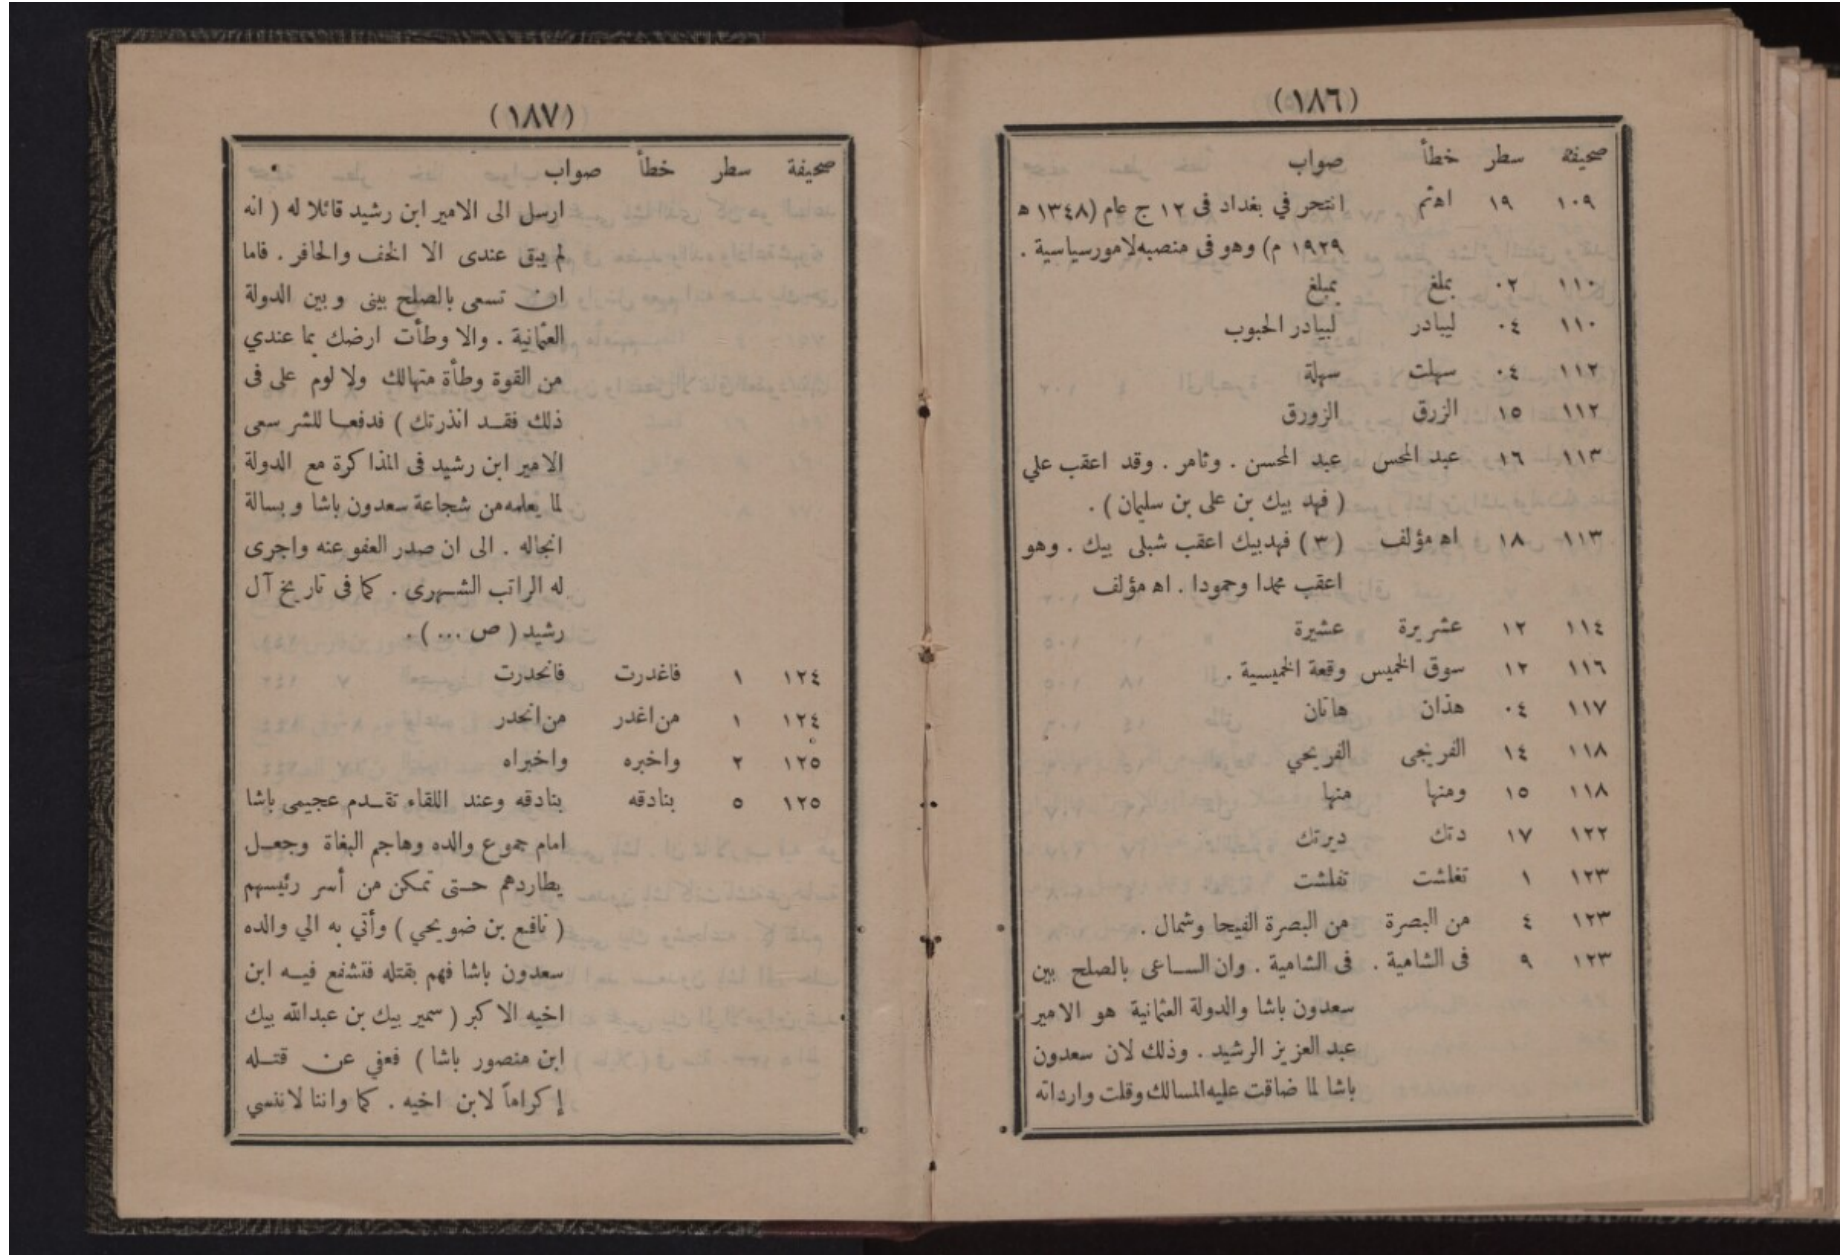 (١٨٦)
صحيفة سطر خطأ صواب
١٠٩ ١٩ اهتم انتحر في بغداد فى ١٢ ج عام (١٣٤٨ ه
١٩٢٩ م) وهو فى منصبه لامور سياسية .
١١٠ ٠٢ بملغ بمبلغ
١١٠ ٠٤ ليبادر لبيادر الحبوب
١١٢ ٠٤ سهلت سهلة
١١٢ ١٥ الزرق الزورق
١١٣ ١٦ عبد المحس عبد المحسن . وثامر . وقد اعقب علي
( فهد بيك بن على بن سليمان ) .
١١٣ ١٨ اه مؤلف ( ٣ ) فهد بيك اعقب شبلى بيك . وهو
اعقب محمدا وحمودا . اه مؤلف
١١٤ ١٢ عشريرة عشيرة
١١٦ ١٢ سوق الخميس وقعة الخميسية .
١١٧ ٠٤ هذان هاتان
١١٨ ١٤ الفرنجى الفريحي
١١٨ ١٥ ومنها منها
١٢٢ ١٧ دتك ديرتك
١٢٣ ١ تغلشت تفلشت
١٢٣ ٤ من البصرة من البصرة الفيحا وشمال .
١٢٣ ٩ فى الشامية . فى الشامية . وان الساعى بالصلح بين
سعدون باشا والدولة العثمانية هو الامير
عبد العزيز الرشيد . وذلك لان سعدون
باشا لما ضاقت عليه المسالك وقلت وارداته
(١٨٧)
صحيفة سطر خطأ صواب
ارسل الى الامير ابن رشيد قائلا له ( انه
لم يبق عندى الا الخف والحافر . فاما
ان تسعى بالصلح بينى وبين الدولة
العثمانية . والا وطأت ارضك بما عندي
من القوة وطأة متهالك ولا لوم على فى
ذلك فقد انذرتك ) فدفعا للشر سعى
الامير ابن رشيد فى المذاكرة مع الدولة
لما يعلمه من شجاعة سعدون باشا وبسالة
انجاله . الى ان صدر العفو عنه واجرى
له الراتب الشهرى . كما فى تاريخ آل
رشيد ( ص ... ) .
١٢٤ ١ فاغدرت فانحدرت
١٢٤ ١ من اغدر من انحدر
١٢٥ ٢ واخبره واخبراه
١٢٥ ٥ بنادقه بنادقه وعند اللقاء تقدم عجيمى باشا
امام جموع والده وهاجم البغاة وجعل
يطاردهم حتى تمكن من أسر رئيسهم
( نافع بن ضويحي ) وأتي به الي والده
سعدون باشا فهم بقتله فتشفع فيه ابن
اخيه الاكبر ( سمير بيك بن عبدالله بيك
ابن منصور باشا ) فعفي عن قتله
إكراماً لابن اخيه . كما واننا لا ننسي